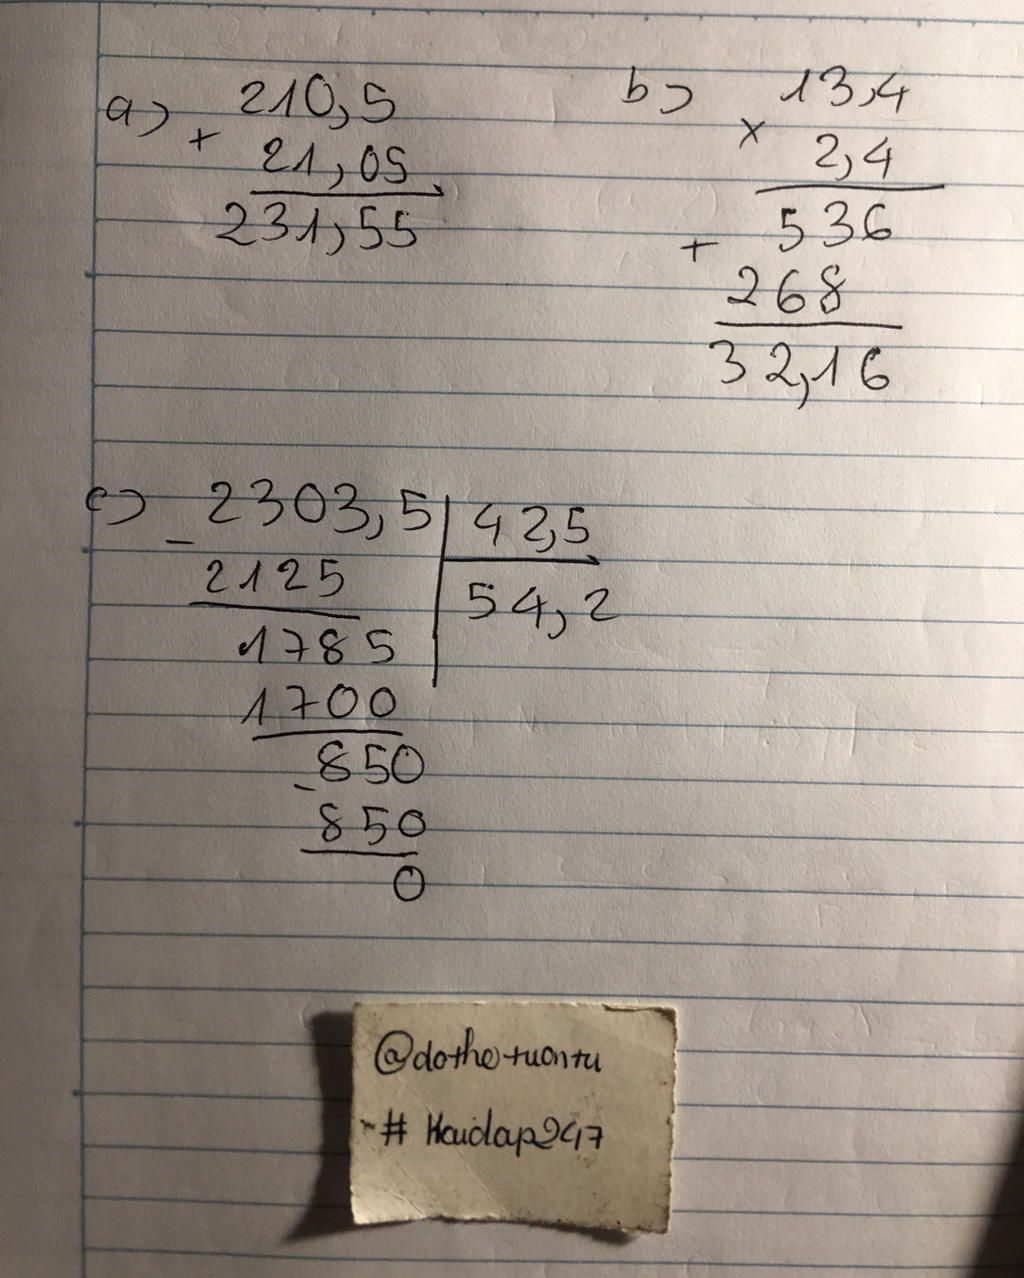 a) 210,5
+ 21,05
231,55
b) 13,4
× 2,4
536
+ 268
32,16
c) 2303,5 | 42,5
- 2125 | 54,2
1785
1700
850
- 850
0
@dothetuantu
# Hoidap247